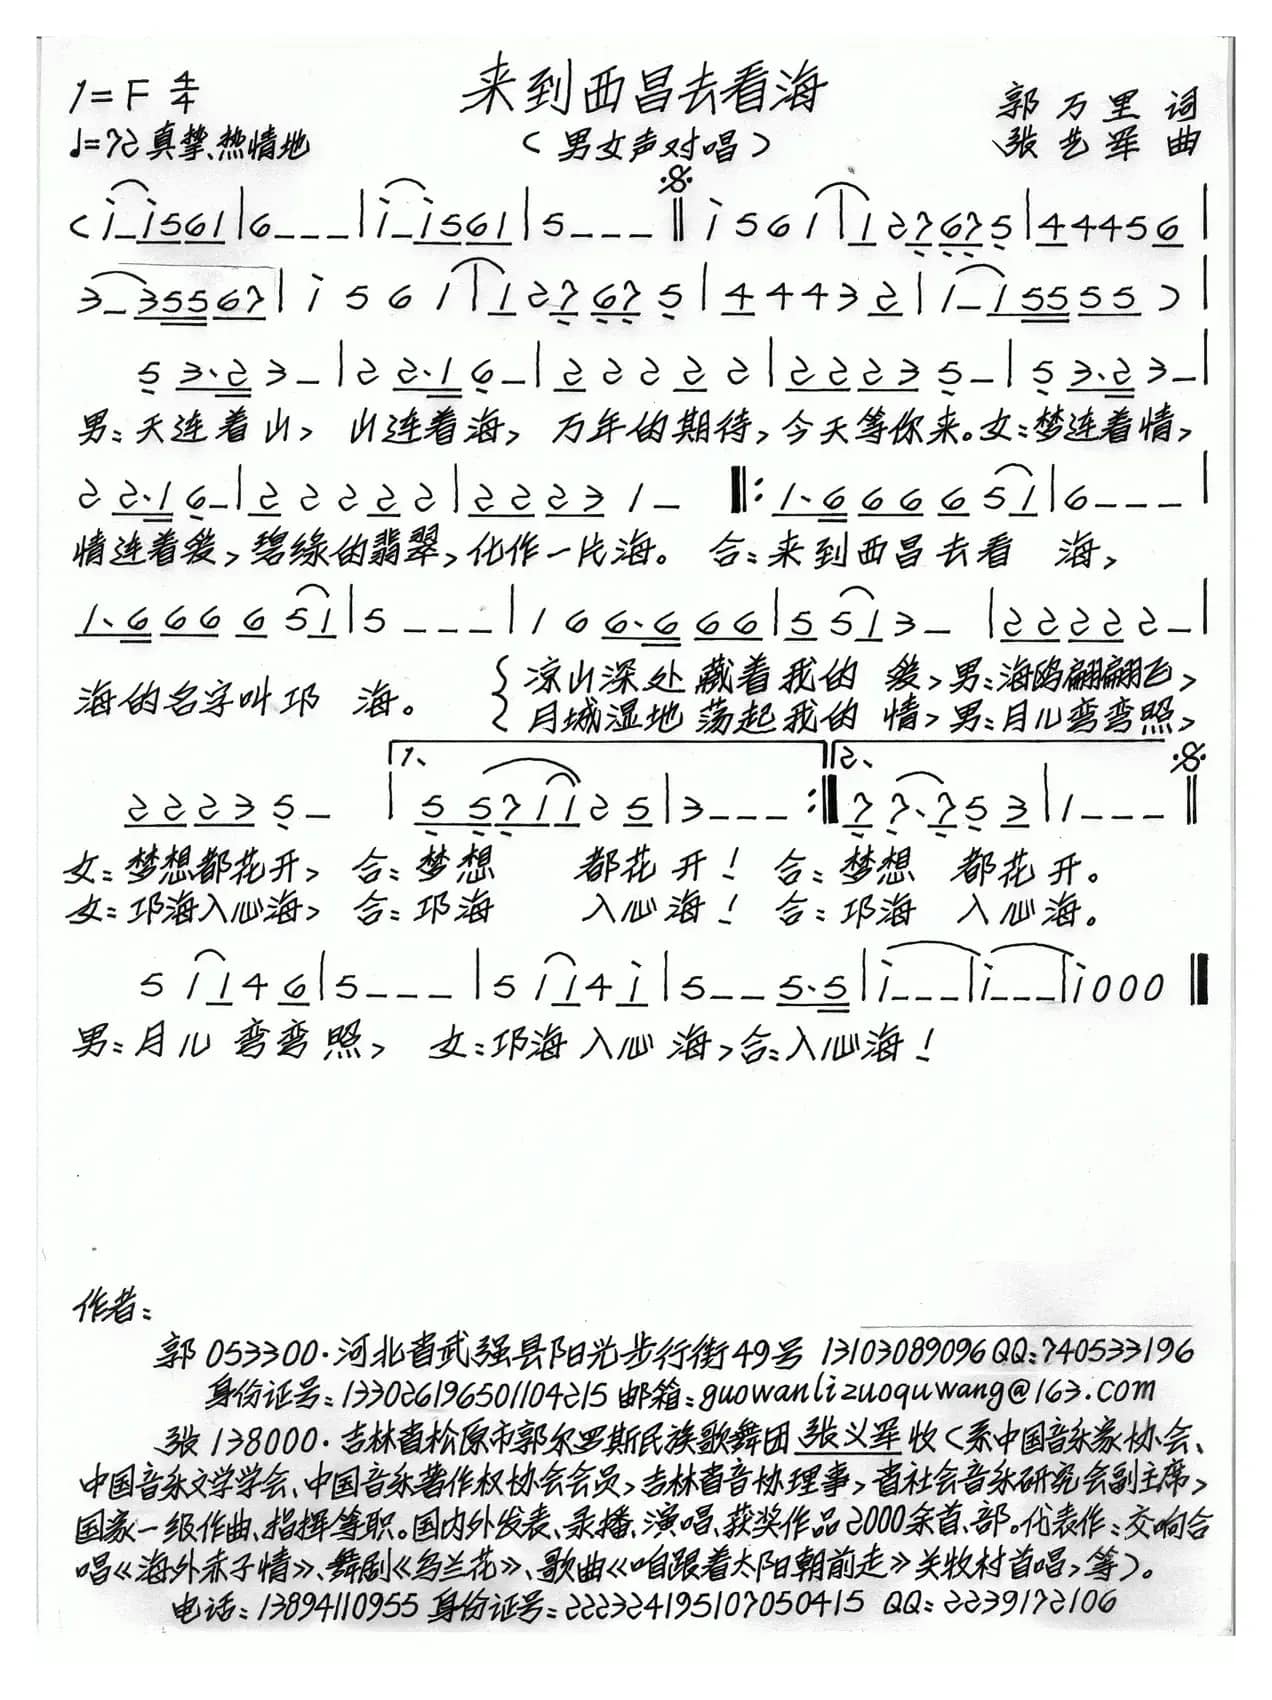 来到西昌去看海
1=F 4/4
郭万里 词
♩=72 真挚、热情地
(男女声对唱)
张艺军 曲
(i_i561|6___|i_i561|5___‖i561|127675|44456|
3_35567|i561|127675|44432|1_15555)|
53·23_|22·16_|22222|22235_|53·23_|
男:天连着山, 山连着海, 万年的期待,今天等你来。女:梦连着情,
22·16_|22222|22231_‖:1·666651|6___|
情连着爱,碧绿的翡翠,化作一片海。 合:来到西昌去看 海,
1·666651|5___|166·666|5513_|22222_|
海的名字叫邛 海。 {凉山深处藏着我的 爱,男:海鸥翩翩飞,
{月城湿地荡起我的 情,男:月儿弯弯照,
1、 2、
22235_|5571125|3___:‖77·753|1___‖
女:梦想都花开, 合:梦想 都花开! 合:梦想 都花开。
女:邛海入心海, 合:邛海 入心海! 合:邛海 入心海。
51146|5___|5114i|5__5·5|i___|i___|i000‖
男:月儿弯弯照, 女:邛海入心海,合:入心海!
作者:
郭 053300·河北省武强县阳光步行街49号 13103089096 QQ:740533196
身份证号:133026196501104215 邮箱:guowanlizuoquwang@163.com
张 138000·吉林省松原市郭尔罗斯民族歌舞团 张义军 收(系中国音乐家协会、
中国音乐文学学会、中国音乐著作权协会会员,吉林省音协理事,省社会音乐研究会副主席,
国家一级作曲、指挥等职。国内外发表、录播、演唱、获奖作品2000余首、部。代表作:交响合
唱《海外赤子情》、舞剧《乌兰花》、歌曲《咱跟着太阳朝前走》关牧村首唱,等)。
电话:13894110955 身份证号:222324195107050415 QQ:2239172106